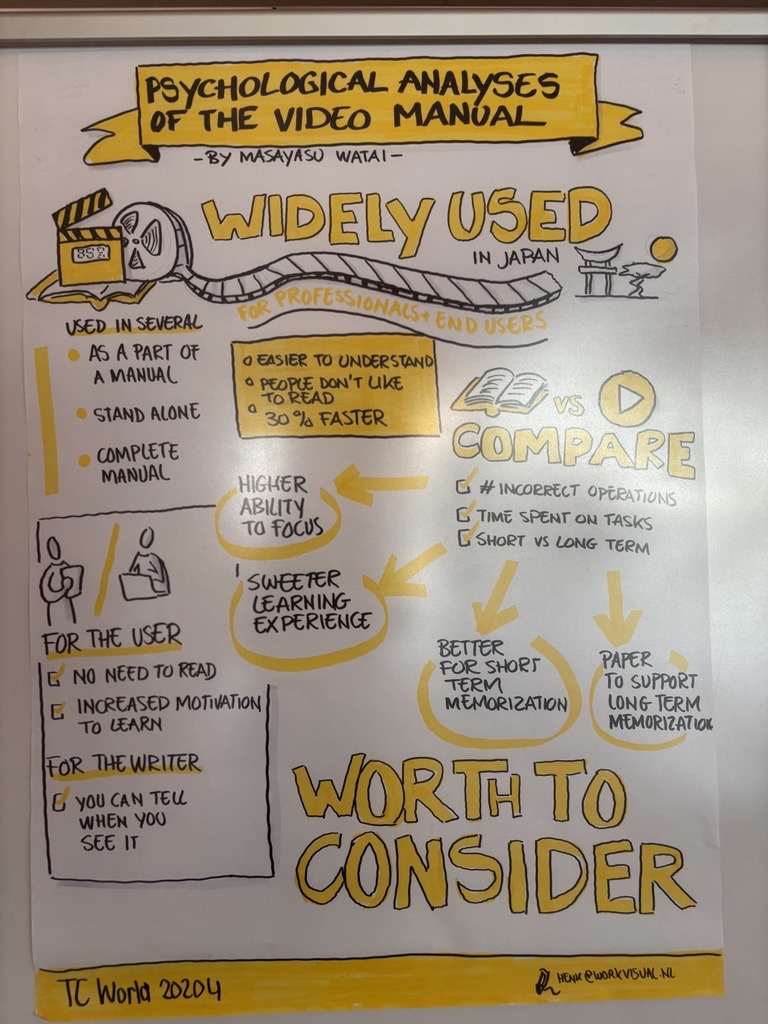 PSYCHOLOGICAL ANALYSES
OF THE VIDEO MANUAL
-BY MASAYASU WATAI-
WIDELY USED
IN JAPAN
FOR PROFESSIONALS+ END USERS
USED IN SEVERAL
AS A PART OF
A MANUAL
STAND ALONE
COMPLETE
MANUAL
EASIER TO UNDERSTAND
PEOPLE DON'T LIKE
TO READ
30% FASTER
VS
COMPARE
# INCORRECT OPERATIONS
TIME SPENT ON TASKS
SHORT VS LONG TERM
HIGHER
ABILITY
TO FOCUS
'SWEETER
LEARNING
EXPERIENCE
BETTER
FOR SHORT
TERM
MEMORIZATION
PAPER
TO SUPPORT
LONG TERM
MEMORIZATION
FOR THE USER
NO NEED TO READ
INCREASED MOTIVATION
TO LEARN
FOR THE WRITER
YOU CAN TELL
WHEN YOU
SEE IT
WORTH TO
CONSIDER
TC World 20204
HENK@WORKVISUAL.NL